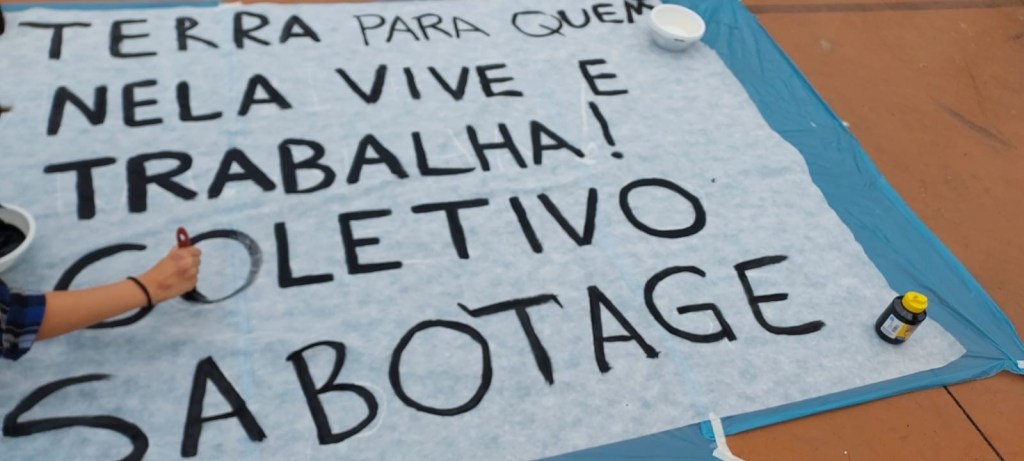 TERRA PARA QUEM
NELA VIVE E
TRABALHA!
COLETIVO
SABOTAGE